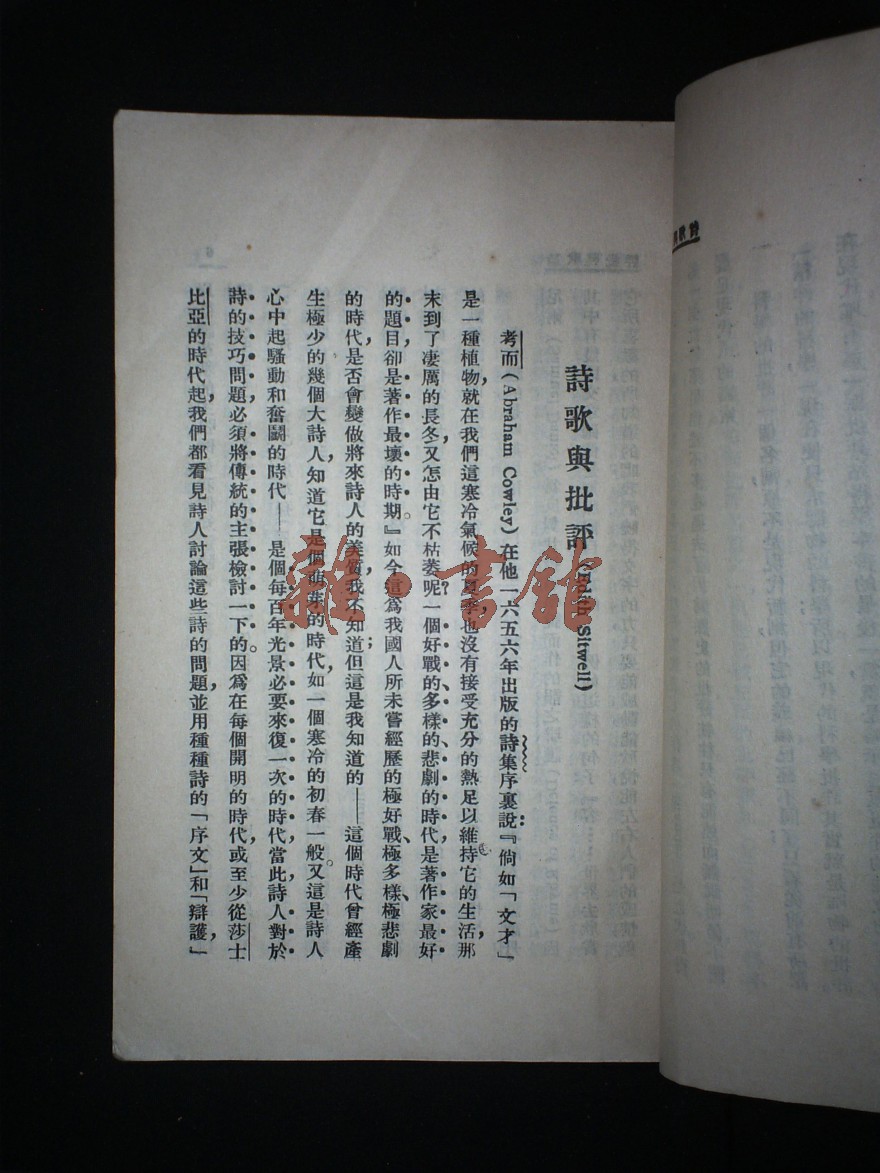 詩歌與批評 (Edith Sitwell)
考而(Abraham Cowley)在他一六五六年出版的詩集序裏說:『倘如「文才」
是一種植物,就在我們這寒冷氣候的夏季,也沒有接受充分的熱足以維持它的生活,那
末到了凄厲的長冬,又怎由它不枯萎呢?一個好戰的、多樣的、悲劇的時代是著作家最好
的題目,卻是著作最壞的時期。』如今這爲我國人所未嘗經歷的極好戰、極多樣、極悲劇
的時代,是否會變做將來詩人的美質,我不知道;但這是我知道的——這個時代曾經產
生極少的幾個大詩人,知道它是個萌芽的時代,如一個寒冷的初春一般。又這是詩人
心中起騷動和奮鬭的時代——是個每百年光景必要來復一次的時代,當此詩人對於
詩的技巧問題,必須將傳統的主張檢討一下的。因爲在每個開明的時代,或至少從莎士
比亞的時代起,我們都看見詩人討論這些詩的問題,並用種種詩的「序文」和「辯護」,
雜·書館